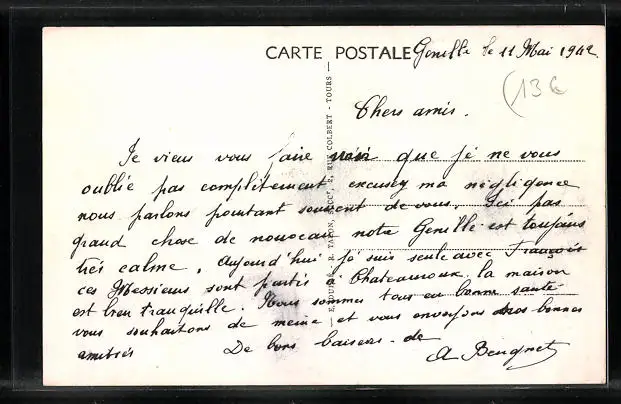 CARTE POSTALE
Genillé le 11 Mai 1942
(136
Chers amis.
Je viens vous faire voir que je ne vous
oublie pas complètement excusez ma négligence
nous parlons pourtant souvent de vous. Ici pas
grand chose de nouveau notre Genillé est toujours
très calme. Aujourd'hui je suis seule avec François
ces Messieurs sont partis à Chateauroux la maison
est bien tranquille. Nous sommes tous en bonne santé
vous souhaitons de meme et vous envoyons nos bonnes
amitiés De bons baisers de
A Beugnet
R. TAPON, SUCCr, 2, RUE COLBERT - TOURS